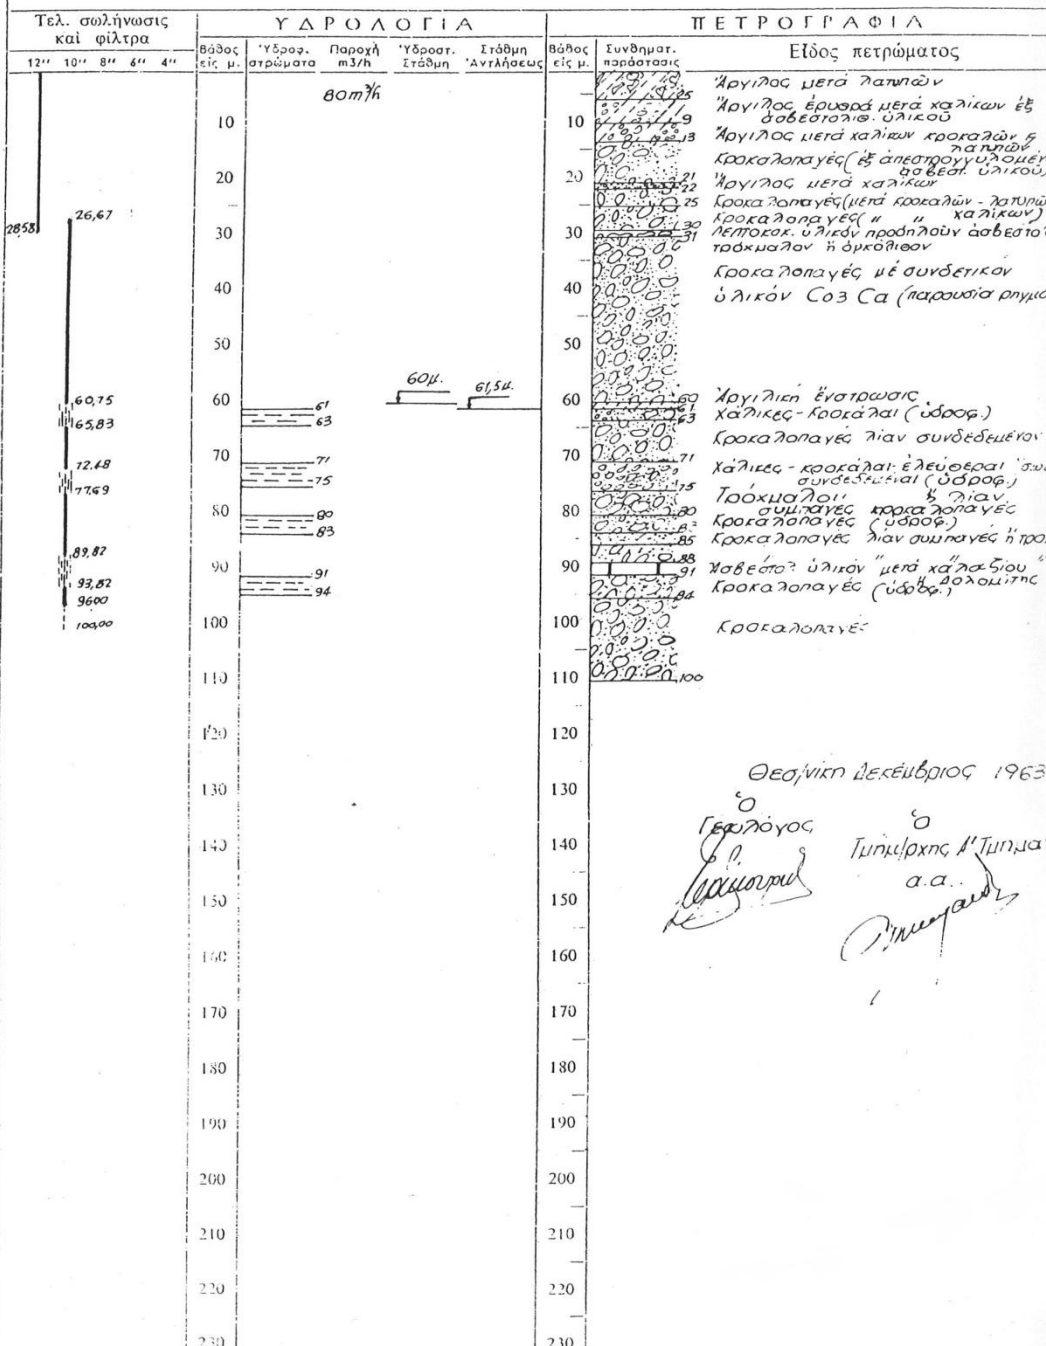 Τελ. σωλήνωσις
καὶ φίλτρα
12" 10" 8" 6" 4"
28,58
26,67
60,75
65,83
72,48
77,69
89,82
93,82
9600
100,00
ΥΔΡΟΛΟΓΙΑ
Βάθος
εἰς μ.
Ὑδροφ.
στρώματα
Παροχὴ
m3/h
Ὑδροστ.
Στάθμη
Στάθμη
Ἀντλήσεως
80 m³/h
10
20
30
40
50
60
70
80
90
100
110
120
130
140
150
160
170
180
190
200
210
220
230
60μ.
61,5μ.
61
63
71
75
80
83
91
94
ΠΕΤΡΟΓΡΑΦΙΑ
Βάθος
εἰς μ.
Συνθηματ.
παράστασις
Εἶδος πετρώματος
10
20
30
40
50
60
70
80
90
100
110
120
130
140
150
160
170
180
190
200
210
220
230
Ἄργιλος μετά λατυπῶν
9
Ἄργιλος ἐρυθρά μετά χαλίκων ἐξ
ἀσβεστολιθ. ὑλικοῦ
13
Ἄργιλος μετά χαλίκων κροκαλῶν
λατυπῶν
Κροκαλοπαγές (ἐξ ἀπεστρογγυλομέν
ἀσβεστ. ὑλικοῦ)
21
22
Ἄργιλος μετά χαλίκων
25
Κροκαλοπαγές (μετά κροκαλῶν - λατυπῶ
30
Κροκαλοπαγές ( " " χαλίκων)
31
Λεπτοκοκ. ὑλικόν προδηλοῦν ἀσβεστο
τρόχμαλον ἤ ὀγκόλιθον
Κροκαλοπαγές μέ συνδετικον
ὑλικόν Co3 Ca (παρουσία ρηγμα
60
Ἀργιλική ἔνστρωσις
61
63
Χάλικες - Κροκάλαι (ὑδροφ.)
Κροκαλοπαγές λίαν συνδεδεμένον
71
Χάλικες - κροκάλαι ἐλευθεραι
συνδεδεμέναι (ὑδροφ.)
75
Τρόχμαλοι λίαν
συμπαγές κροκαλοπαγές
80
Κροκαλοπαγές (ὑδροφ.)
85
Κροκαλοπαγές λίαν συμπαγές ἤ τρο
88
91
Ἀσβεστο? ὑλικόν "μετά χαλαζίου"
ἤ Δολομίτης
94
Κροκαλοπαγές (ὑδροφ.)
Κροκαλοπαγές
100
Θεσ/νίκη Δεκέμβριος 1963
Ὁ
Γεωλόγος
Ὁ
Τμημ/ρχης Α' Τμημα
α.α.